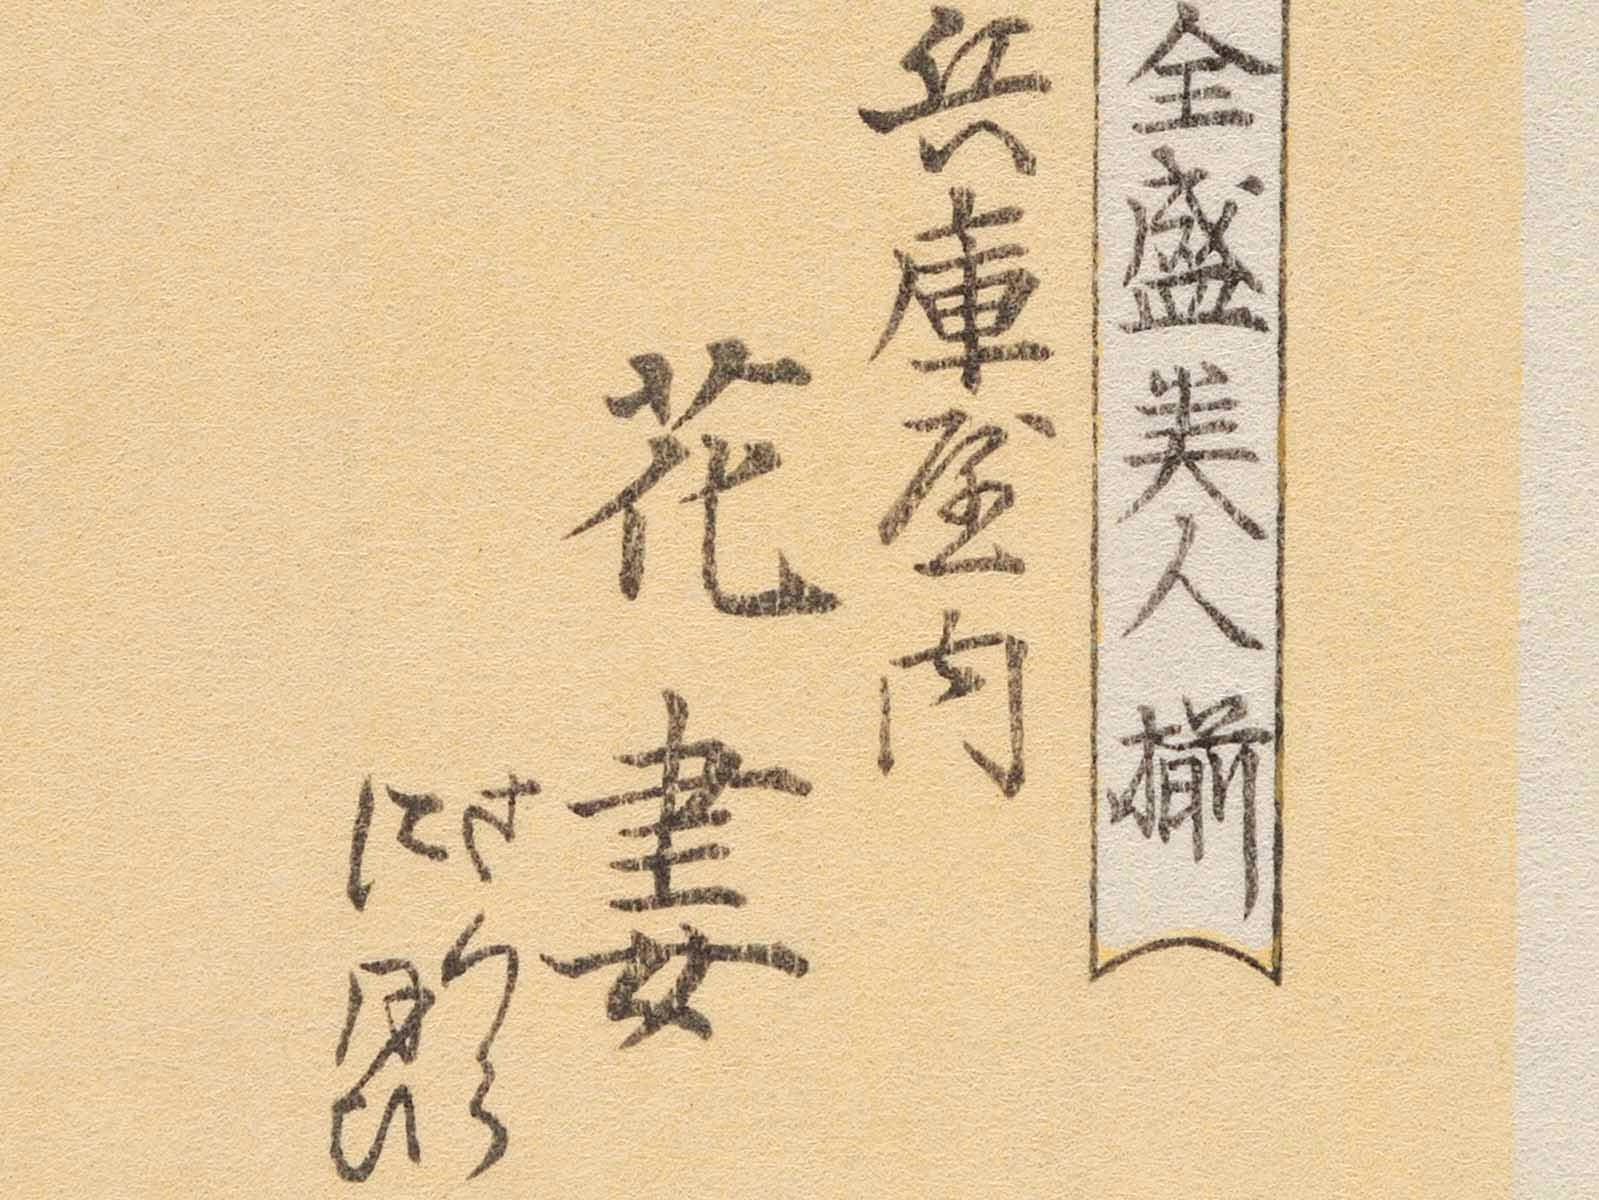 全盛美人揃
兵庫屋内
花妻
さくら
にほひ